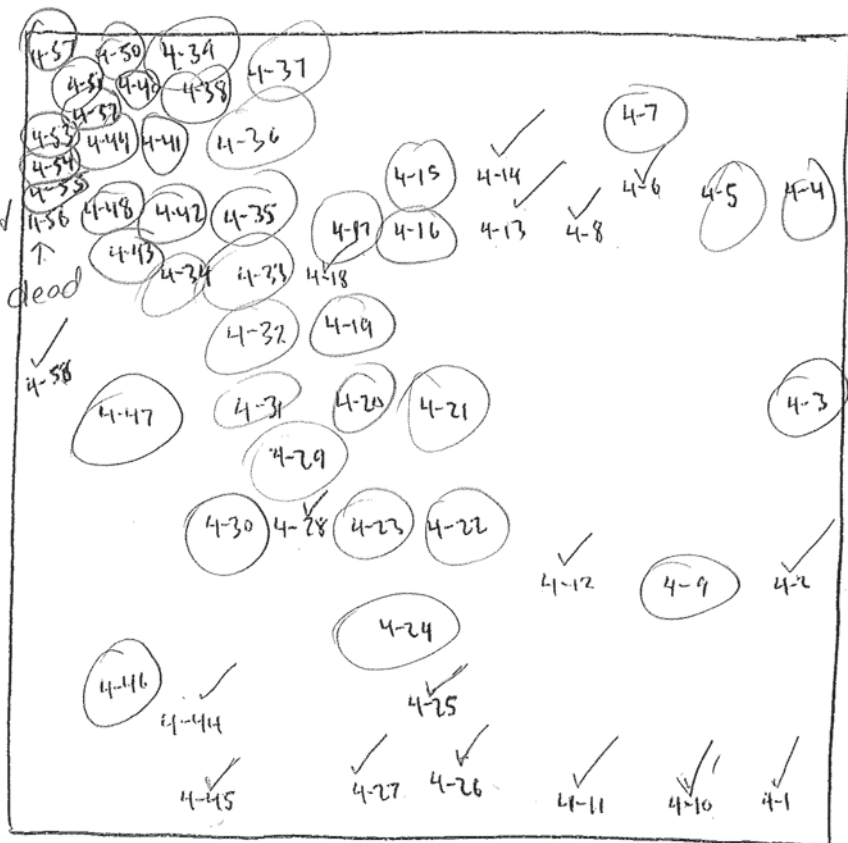 4-57 4-50 4-39 4-37
4-51 4-40 4-38
4-52 4-7
4-53 4-49 4-41 4-36
4-54 4-15 4-14
4-55 4-6 4-5 4-4
4-56 4-48 4-42 4-35 4-17 4-16 4-13 4-8
4-43
4-34 4-33 4-18
dead
4-32 4-19
4-58
4-47 4-31 4-20 4-21 4-3
4-29
4-30 4-28 4-23 4-22
4-12 4-9 4-2
4-24
4-46
4-44 4-25
4-45 4-27 4-26 4-11 4-10 4-1